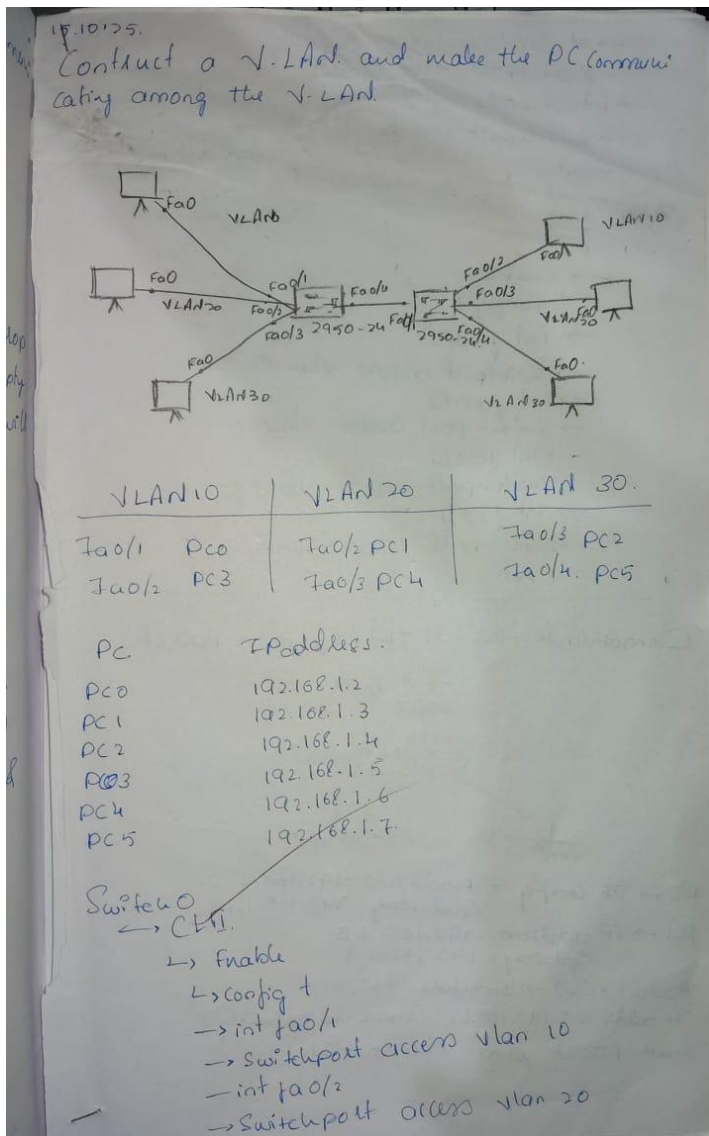 15.10.25.
Contruct a V.LAN. and make the PC Communi
cating among the V-LAN.
Fa0
VLAN
VLAN 10
Fa0/1
Fa0
VLAN20
Fa0/1
Fa0/2
Fa0/3
2950-24
Fa0/4
Fa0/2
Fa0/3
2950-24
Fa0/4
VLAN 20
Fa0
Fa0
VLAN30
Fa0.
VLAN 30
VLAN 10 VLAN 20 VLAN 30.
Fa0/1 PC0 Fa0/2 PC1 Fa0/3 PC2
Fa0/2 PC3 Fa0/3 PC4 Fa0/4. PC5
PC IPaddress.
PC0 192.168.1.2
PC1 192.168.1.3
PC2 192.168.1.4
PC3 192.168.1.5
PC4 192.168.1.6
PC5 192.168.1.7.
Switch 0
↳ CLI.
↳ Enable
↳ config t
→ int fa0/1
→ Switchport access vlan 10
— int fa0/2
→ Switchport access vlan 20